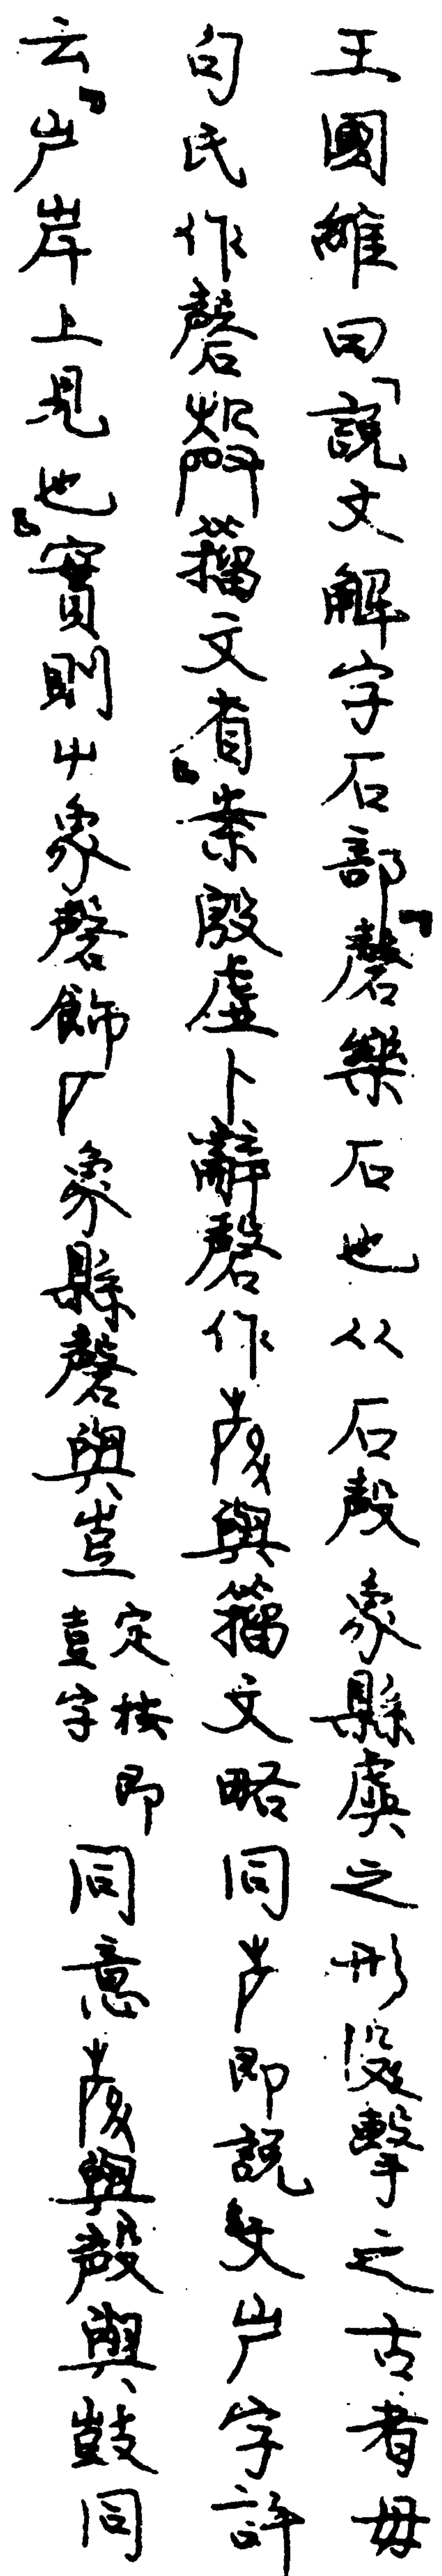 王國維曰「說文解字石部『磬樂石也从石殸象縣虡之形殳擊之古者毋
句氏作磬殸籀文省』案殷虛卜辭磬作與籀文略同即說文屵字許
云『屵岸上見也』實則屮象磬飾厂象縣磬與豈定按即壴字同意與殸與鼓同